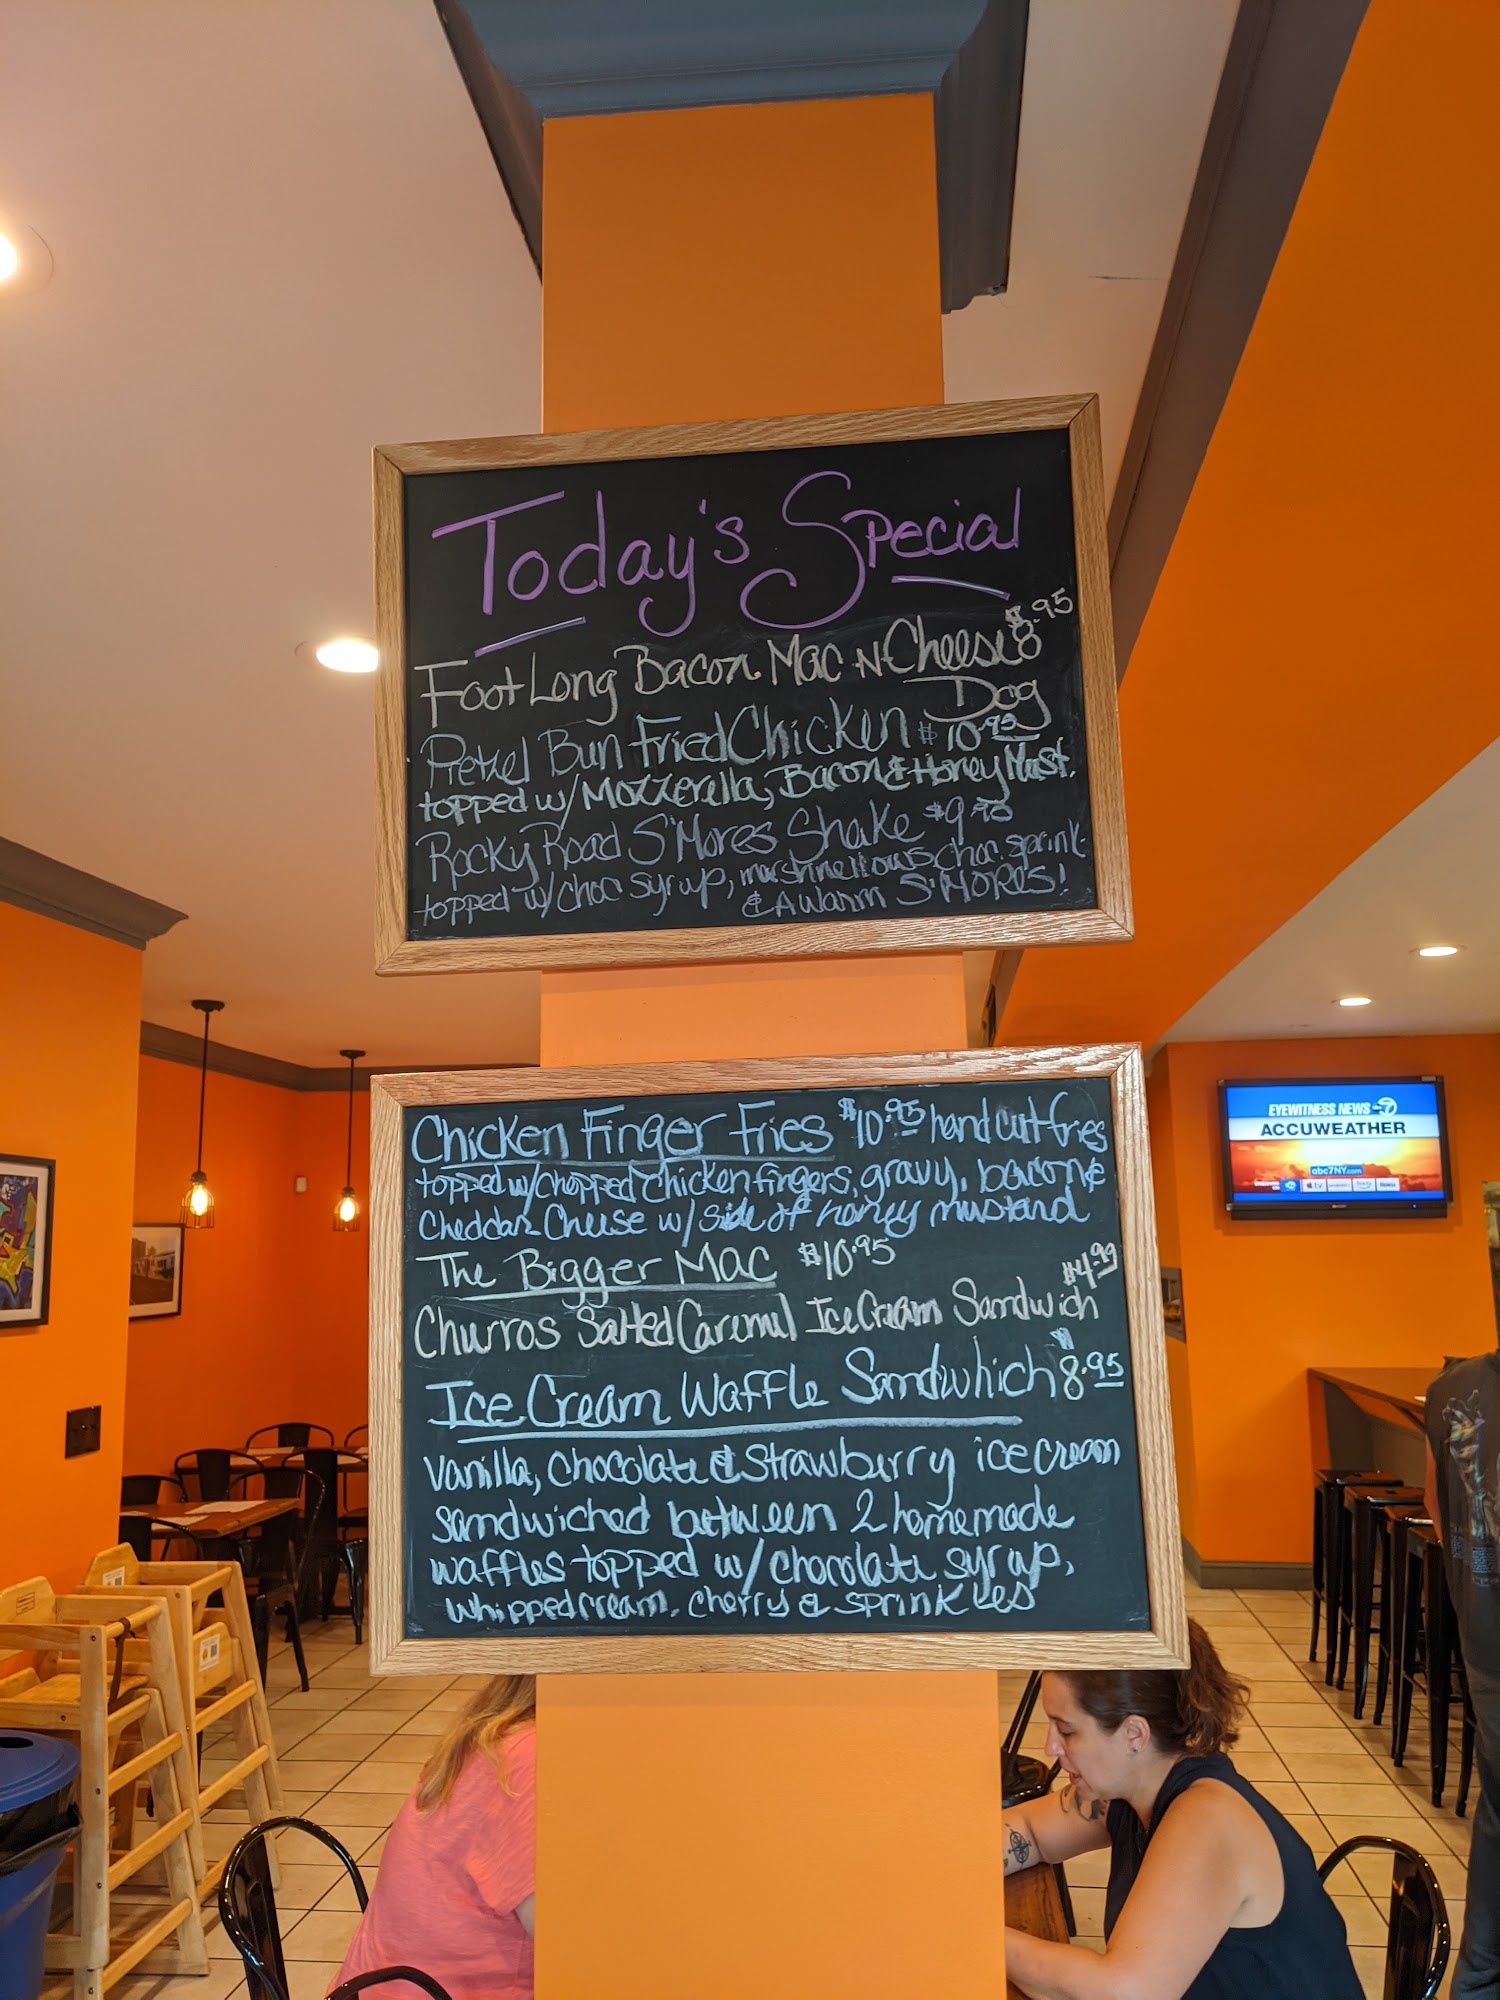 Today's Special
Foot Long Bacon Mac N Cheese $8.95
Dog
Pretzel Bun Fried Chicken $10.95
topped w/ Mozzerella, Bacon & Honey Must.
Rocky Road S'Mores Shake $9.95
topped w/ choc syrup, marshmellows choc. sprink
& A Warm S'MORES!
Chicken Finger Fries $10.95 hand cut fries
topped w/ chopped chicken fingers, gravy, bacon &
Cheddar Cheese w/ side of honey mustard
The Bigger Mac $10.95
Churros Salted Caremel Ice Cream Sandwich $4.99
Ice Cream Waffle Sandwhich $8.95
Vanilla, chocolate & strawberry ice cream
sandwiched between 2 homemade
waffles topped w/ chocolate syrup,
whipped cream, cherry & sprinkles
EYEWITNESS NEWS 7
ACCUWEATHER
abc7NY.com
tv
Roku